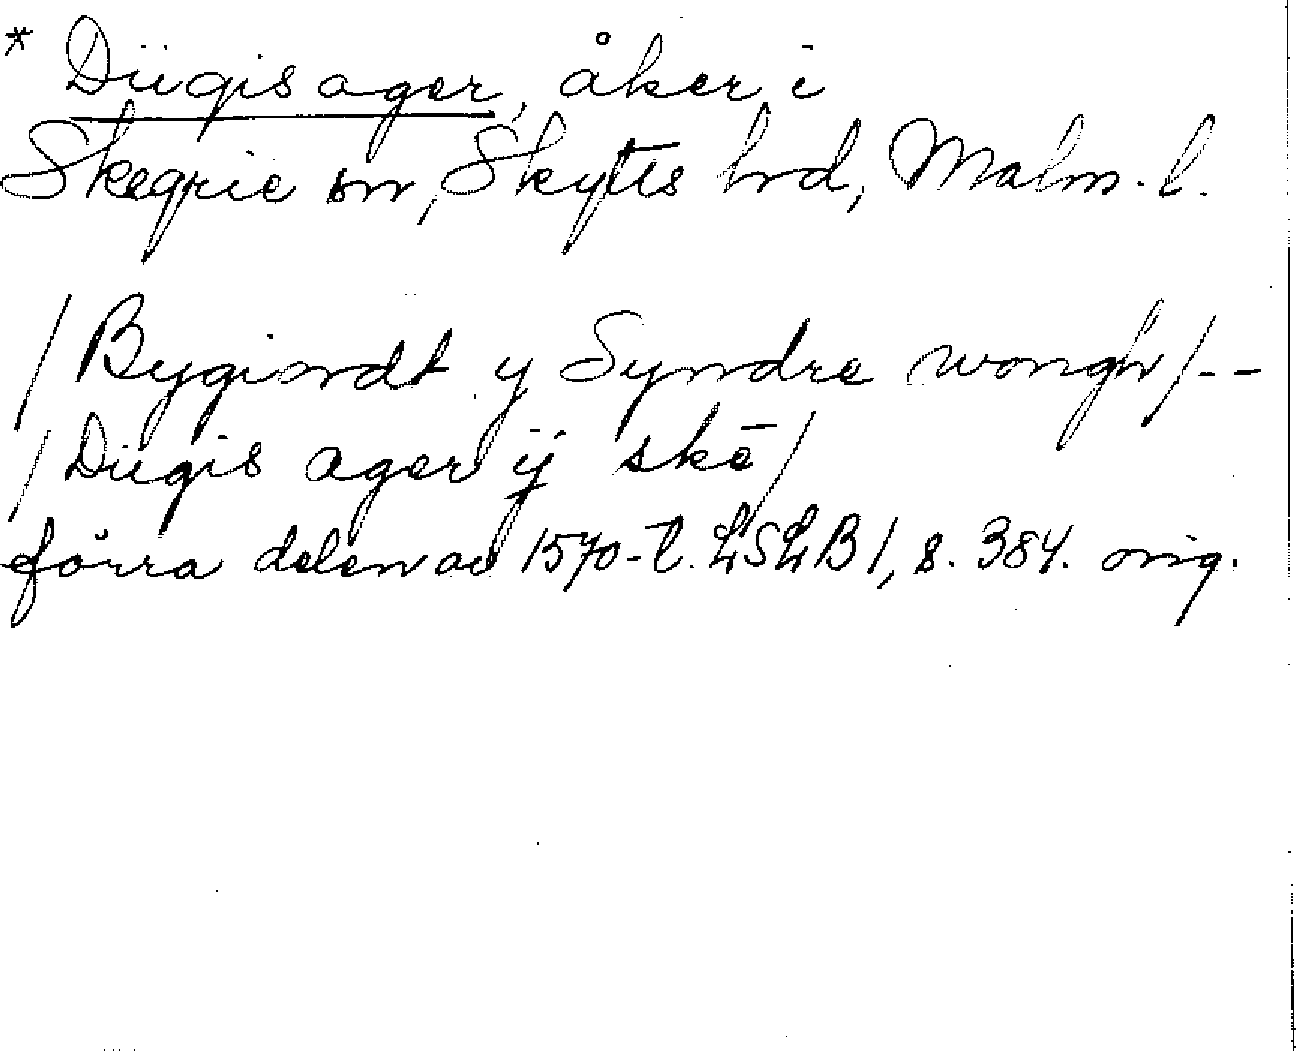 * Dügis ager, åker i
Skegrie sn, Skytts hrd, Malm. l.
/Bygiordt y Syndre wongh/--
/Dügis ager ÿ skē/
förra delen av 1570-t. LSLB 1, s. 384. orig.